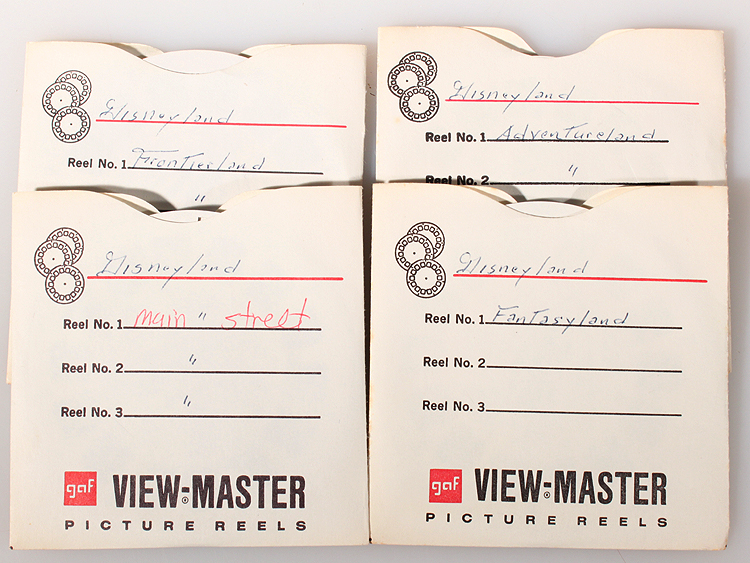 Disneyland
Reel No. 1 Frontierland
"
Disneyland
Reel No. 1 Adventureland
Reel No. 2 "
Disneyland
Reel No. 1 main " street
Reel No. 2 "
Reel No. 3 "
gaf VIEW-MASTER®
PICTURE REELS
Disneyland
Reel No. 1 Fantasyland
Reel No. 2
Reel No. 3
gaf VIEW-MASTER®
PICTURE REELS